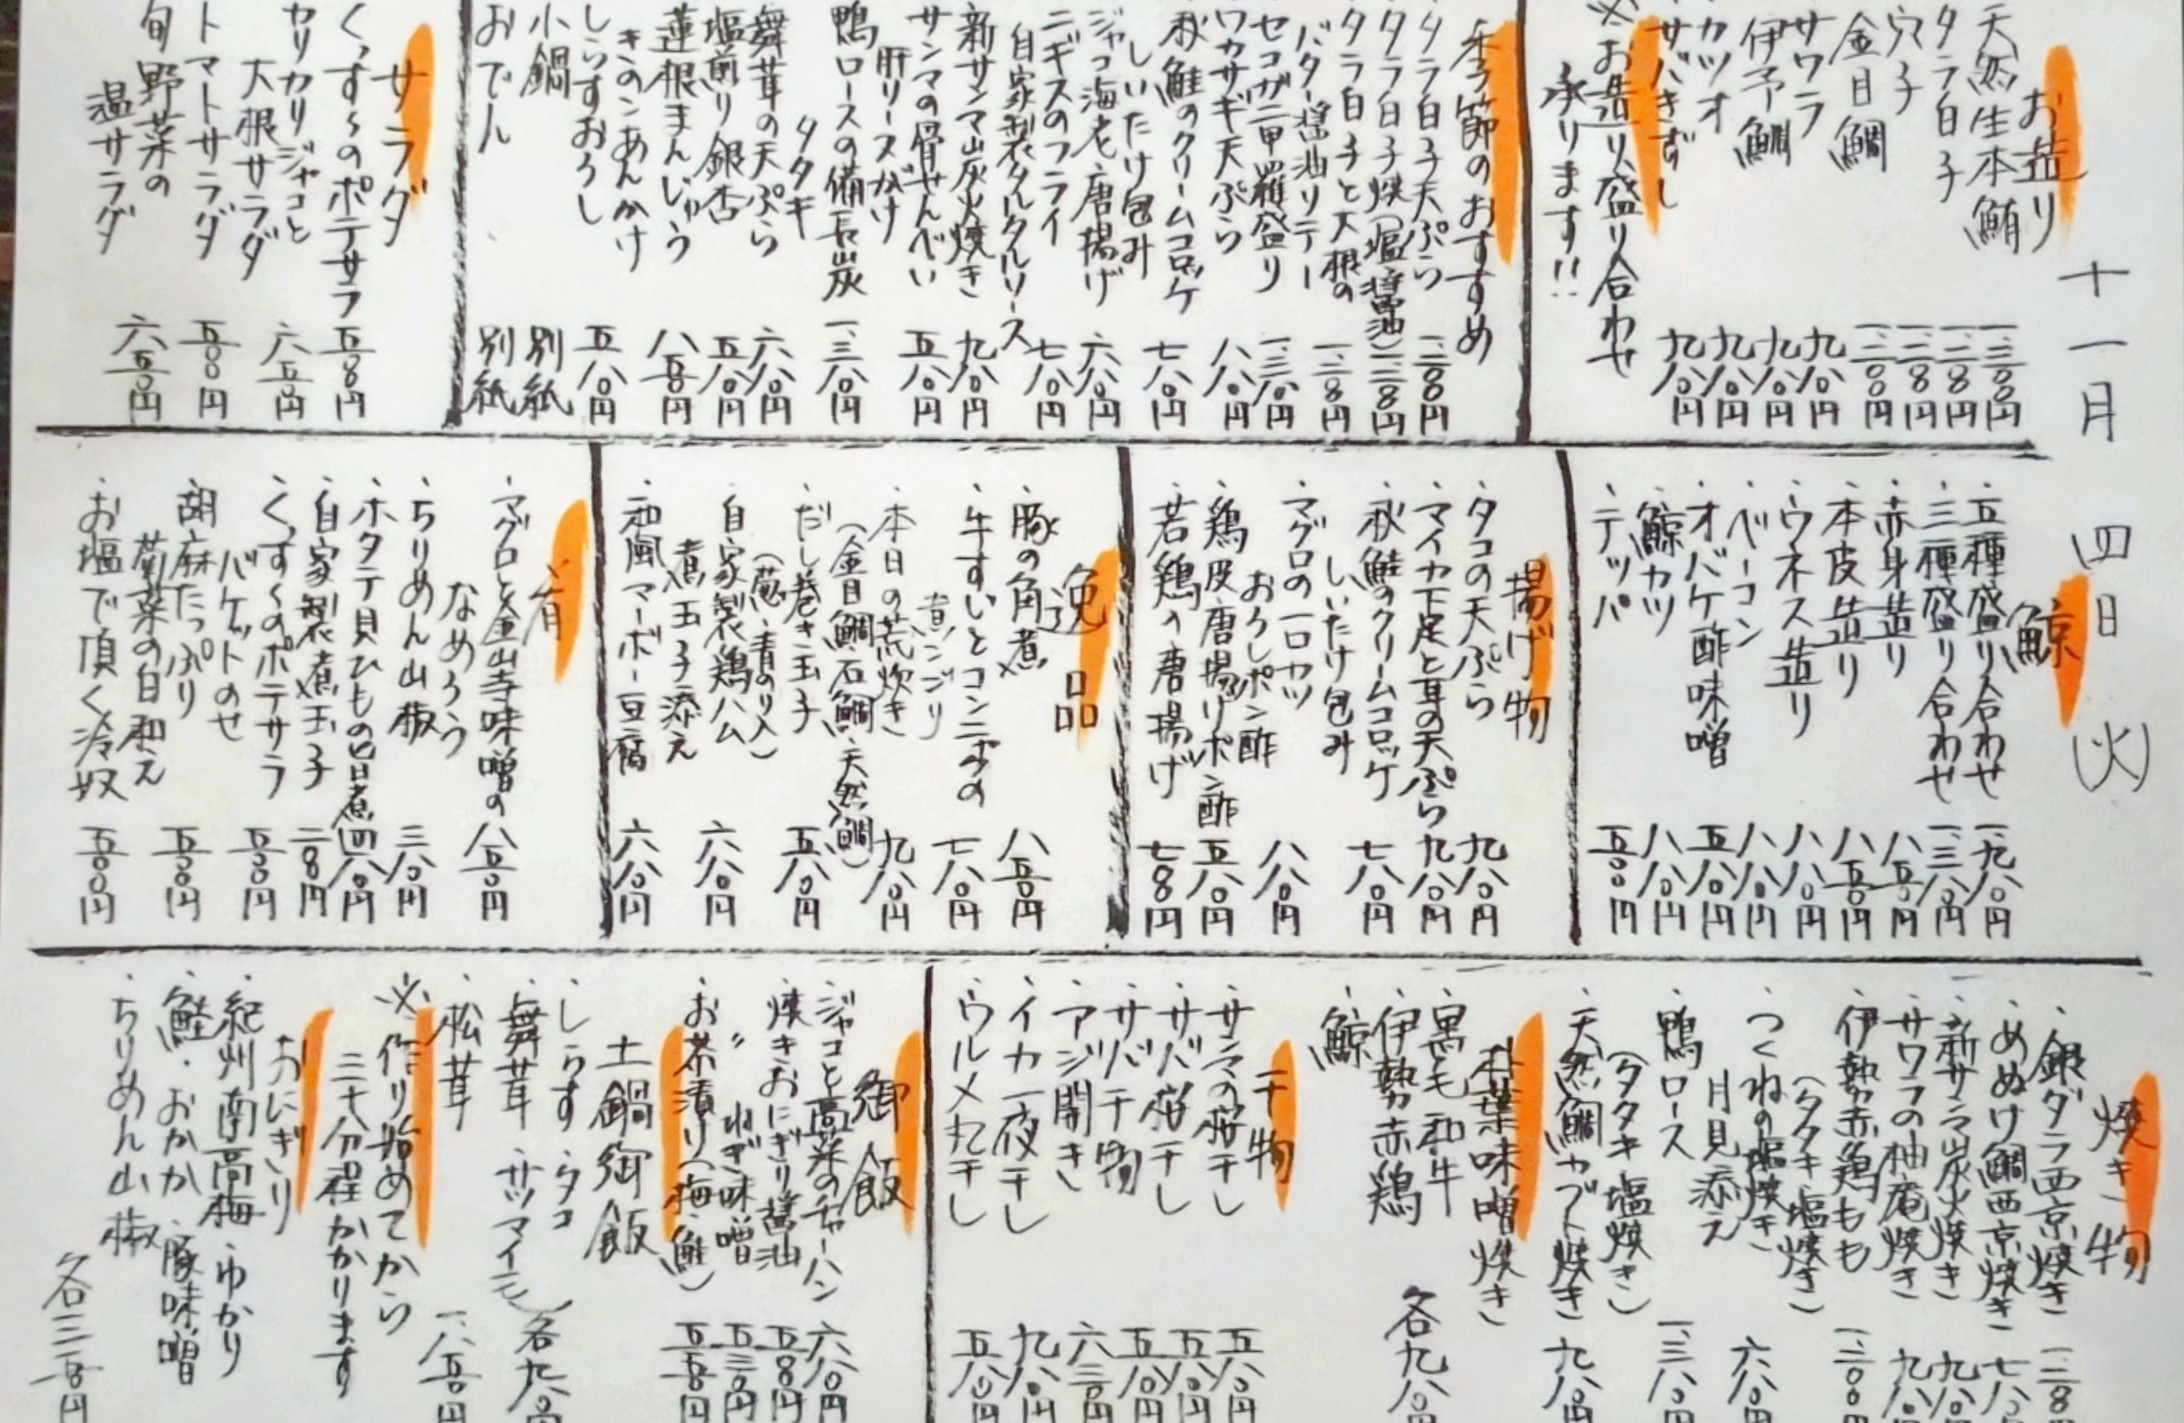 十一月 四日 (火)
お造り
・天然生本鮪 一、三〇〇円
・タラ白子 一、二八〇円
・穴子 一、二八〇円
・金目鯛 一、二〇〇円
・サワラ 九八〇円
・伊予鯛 九八〇円
・カツオ 九八〇円
・サバきずし 九八〇円
※お造り盛り合わせ
承ります!!
季節のおすすめ
・タラ白子天ぷら 一、二〇〇円
・タラ白子焼(塩・醤油) 一、二八〇円
・タラ白子と大根の
バター醤油ソテー 一、二八〇円
・セコガニ甲羅盛り 一、三八〇円
・ワカサギ天ぷら 八八〇円
・秋鮭のクリームコロッケ
しいたけ包み 七八〇円
・ジャコ海老唐揚げ 六八〇円
・ニギスのフライ
自家製タルタルソース 七八〇円
・新サンマ炭火焼き 九八〇円
・サンマの骨せんべい
肝ソースがけ 五八〇円
・鴨ロースの備長炭
タタキ 一、三八〇円
・舞茸の天ぷら 六八〇円
・塩煎り銀杏 五八〇円
・蓮根まんじゅう
きのこあんかけ 八五〇円
・しらすおろし 五八〇円
・小鍋 別紙
・おでん 別紙
サラダ
・くっすぅのポテサラ 五〇〇円
・カリカリジャコと
大根サラダ 六五〇円
・トマトサラダ 五〇〇円
・旬野菜の
温サラダ 六五〇円
鯨
・五種盛り合わせ 一、九八〇円
・三種盛り合わせ 一、三八〇円
・赤身造り 八五〇円
・本皮造り 八五〇円
・ウネス造り 八八〇円
・ベーコン 八八〇円
・オバケ酢味噌 五八〇円
・鯨カツ 八八〇円
・テッパ 五〇〇円
揚げ物
・タコの天ぷら 九八〇円
・マイカ下足と耳の天ぷら 九八〇円
・秋鮭のクリームコロッケ
しいたけ包み 七八〇円
・マグロの一口カツ
おろしポン酢 八八〇円
・鶏皮唐揚げポン酢 五八〇円
・若鶏の唐揚げ 七八〇円
逸品
・豚の角煮 八五〇円
・牛すじとコンニャクの
煮こごり 七八〇円
・本日の荒炊き
(金目鯛・石鯛・天然鯛) 九八〇円
・だし巻き玉子
(葱・青のり入) 五八〇円
・自家製鶏ハム
煮玉子添え 六八〇円
・和風マーボー豆腐 六八〇円
肴
・マグロと金山寺味噌の
なめろう 八五〇円
・ちりめん山椒 三八〇円
・ホタテ貝ひもの旨煮 四八〇円
・自家製煮玉子 二八〇円
・くっすぅのポテサラ
バケットのせ 五〇〇円
・胡麻たっぷり
菊菜の白和え 五〇〇円
・お塩で頂く冷奴 五〇〇円
焼き物
・銀ダラ西京焼き 一、二八〇
・めぬけ鯛西京焼き 七八〇
・新サンマ炭火焼き 九八〇
・サワラの柚庵焼き 九八〇
・伊勢赤鶏もも
(タタキ・塩焼き) 一、二〇〇
・つくねの塩焼き
月見添え 六八〇円
・鴨ロース
(タタキ・塩焼き) 一、三八〇
・天然鯛カブト焼き 九八〇円
朴葉味噌焼き
・黒毛和牛
・伊勢赤鶏
・鯨
各九八〇円
干物
・サンマの桜干し 五八〇円
・サバ桜干し 五八〇円
・サバ干物 五八〇円
・アジ開き 六三〇円
・イカ一夜干し 九八〇円
・ウルメ丸干し 五八〇円
御飯
・ジャコと高菜のチャーハン 六八〇円
・焼きおにぎり醤油 五〇〇円
・〃 ねぎ味噌 五三〇円
・お茶漬け(梅・鮭) 五五〇円
土鍋御飯
・しらす・タコ
・舞茸・サツマイモ 各九八〇円
・松茸 一、八五〇円
※作り始めてから
三十分程かかります
おにぎり
・紀州南高梅・ゆかり
・鮭・おかか・豚味噌
・ちりめん山椒
各三五〇円